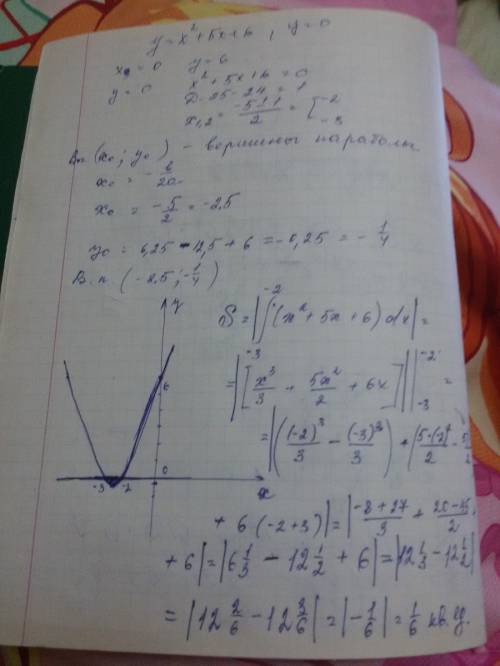 y = x² + 5x + 6 , y = 0
x = 0 y = 6
y = 0 x² + 5x + 6 = 0
D = 25 - 24 = 1
x₁,₂ = (-5±1)/2 = [-2
-3
В.п. (x₀ ; y₀) - вершины параболы
x₀ = -b/2a
x₀ = -5/2 = -2,5
y₀ = 6,25 - 12,5 + 6 = -0,25 = -1/4
В.п. (-2,5 ; -1/4)
S = |∫₋₃⁻² (x² + 5x + 6) dx| =
= |[x³/3 + 5x²/2 + 6x]||₋₃⁻² =
= |((-2)³/3 - (-3)³/3) + (5·(-2)²/2 - 5
+ 6(-2+3)| = |(-8+27)/3 + (20-45)/2
+ 6| = |6 1/3 - 12 1/2 + 6| = |12 1/3 - 12 1/2|
= |12 2/6 - 12 3/6| = |-1/6| = 1/6 кв. ед.
y
6
0
-3 -2
x